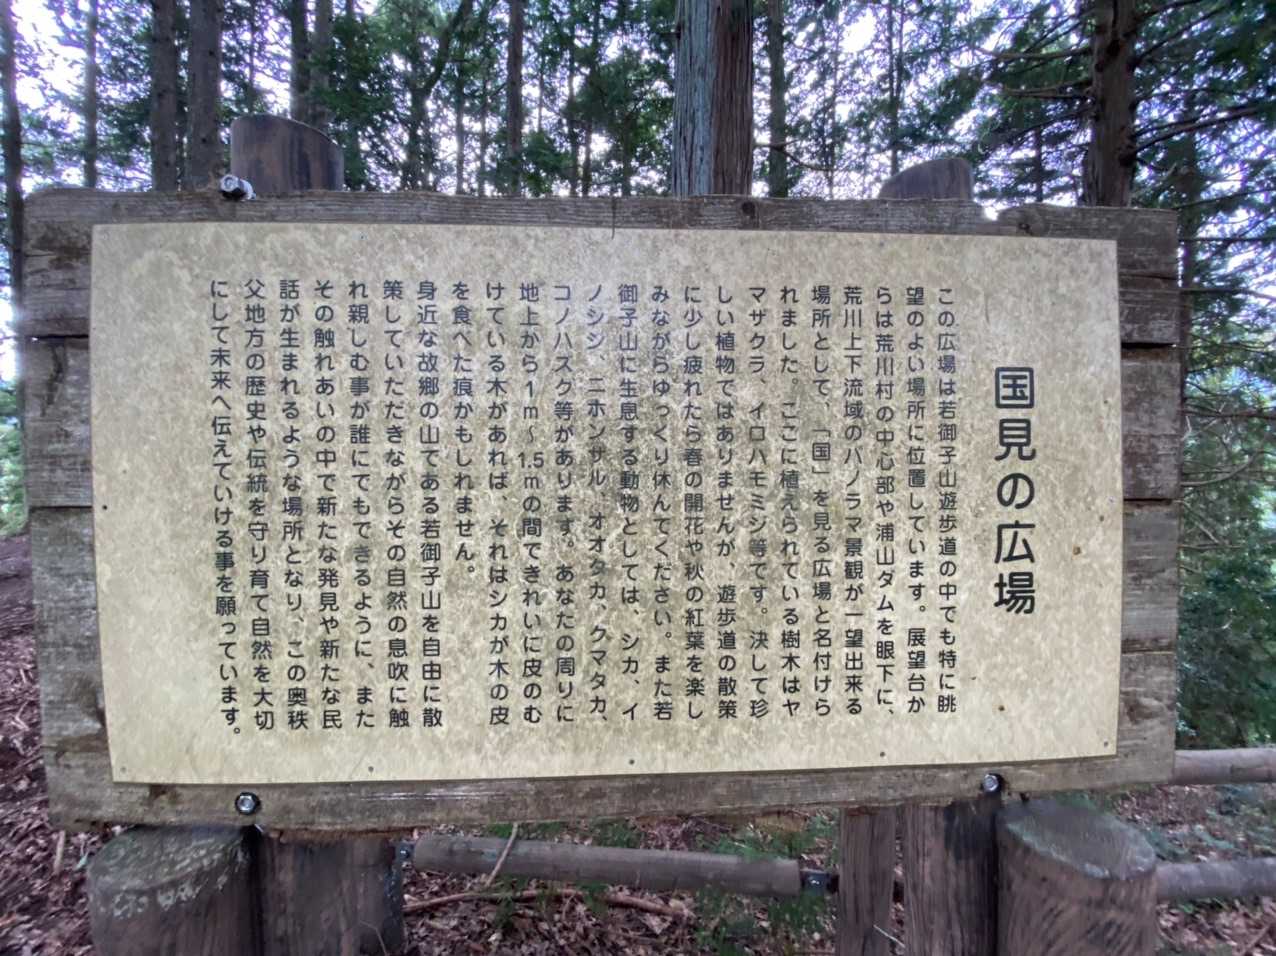 国見の広場
この広場は若御子山遊歩道の中でも特に眺
望のよい場所に位置しています。展望台か
らは荒川村の中心部や浦山ダムを眼下に、
荒川上下流域のパノラマ景観が一望出来る
場所として、「国」を見る広場と名付けら
れました。ここに植えられている樹木はヤ
マザクラ、イロハモミジ等です。決して珍
しい植物ではありませんが、遊歩道の散策
に少し疲れたら春の開花や秋の紅葉を楽し
みながらゆっくり休んでください。また若
御子山に生息する動物としては、シカ、イ
ノシシ、ニホンザル、オオタカ、クマタカ、
コノハズク等があります。あなたの周りに
地上から1m～1.5mの間できれいに皮のむ
けている木があれば、それはシカが木の皮
を食べた痕かもしれません。
身近な故郷の山である若御子山を自由に散
策していただきながらその自然の息吹に触
れ親しむ事が誰にでもできるように、また
その触れあいの中で新たな発見や新たな民
話が生まれるような場所となり、この奥秩
父地方の歴史や伝統を守り育て自然を大切
にして未来へ伝えていける事を願っています。